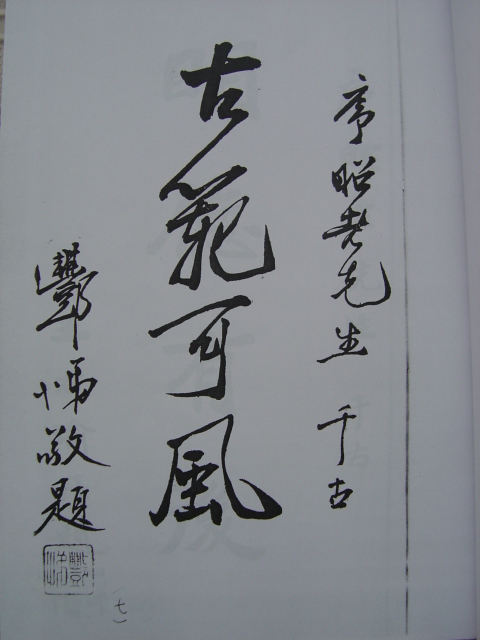 序昭老先生 千古
古範可風
酆悌敬題
(七)